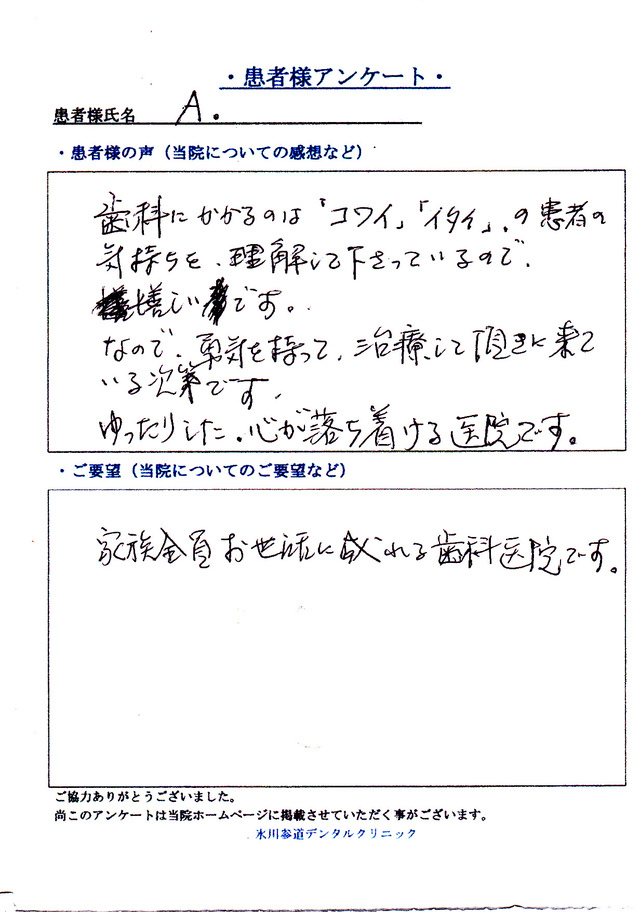 ・患者様アンケート・
患者様氏名 A.
・患者様の声（当院についての感想など）
歯科にかかるのは「コワイ」「イタイ」.の患者の
気持ちを、理解して下さっているので、
嬉しいです。
なので、勇気を持って、治療して頂きに来て
いる次第です、
ゆったりした、心が落ち着ける医院です。
・ご要望（当院についてのご要望など）
家族全員お世話に成れる歯科医院です。
ご協力ありがとうございました。
尚このアンケートは当院ホームページに掲載させていただく事がございます。
氷川参道デンタルクリニック